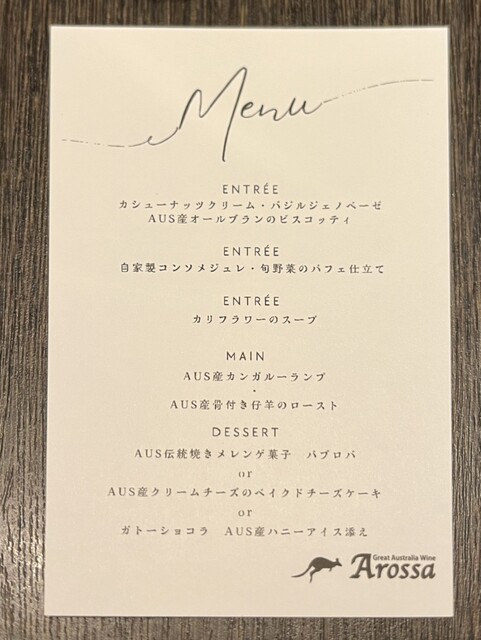 Menu
ENTRÉE
カシューナッツクリーム・バジルジェノベーゼ
AUS産オールブランのビスコッティ
ENTRÉE
自家製コンソメジュレ・旬野菜のパフェ仕立て
ENTRÉE
カリフラワーのスープ
MAIN
AUS産カンガルーランプ
・
AUS産骨付き仔羊のロースト
DESSERT
AUS伝統焼きメレンゲ菓子　パブロバ
or
AUS産クリームチーズのベイクドチーズケーキ
or
ガトーショコラ　AUS産ハニーアイス添え
Great Australia Wine
Arossa